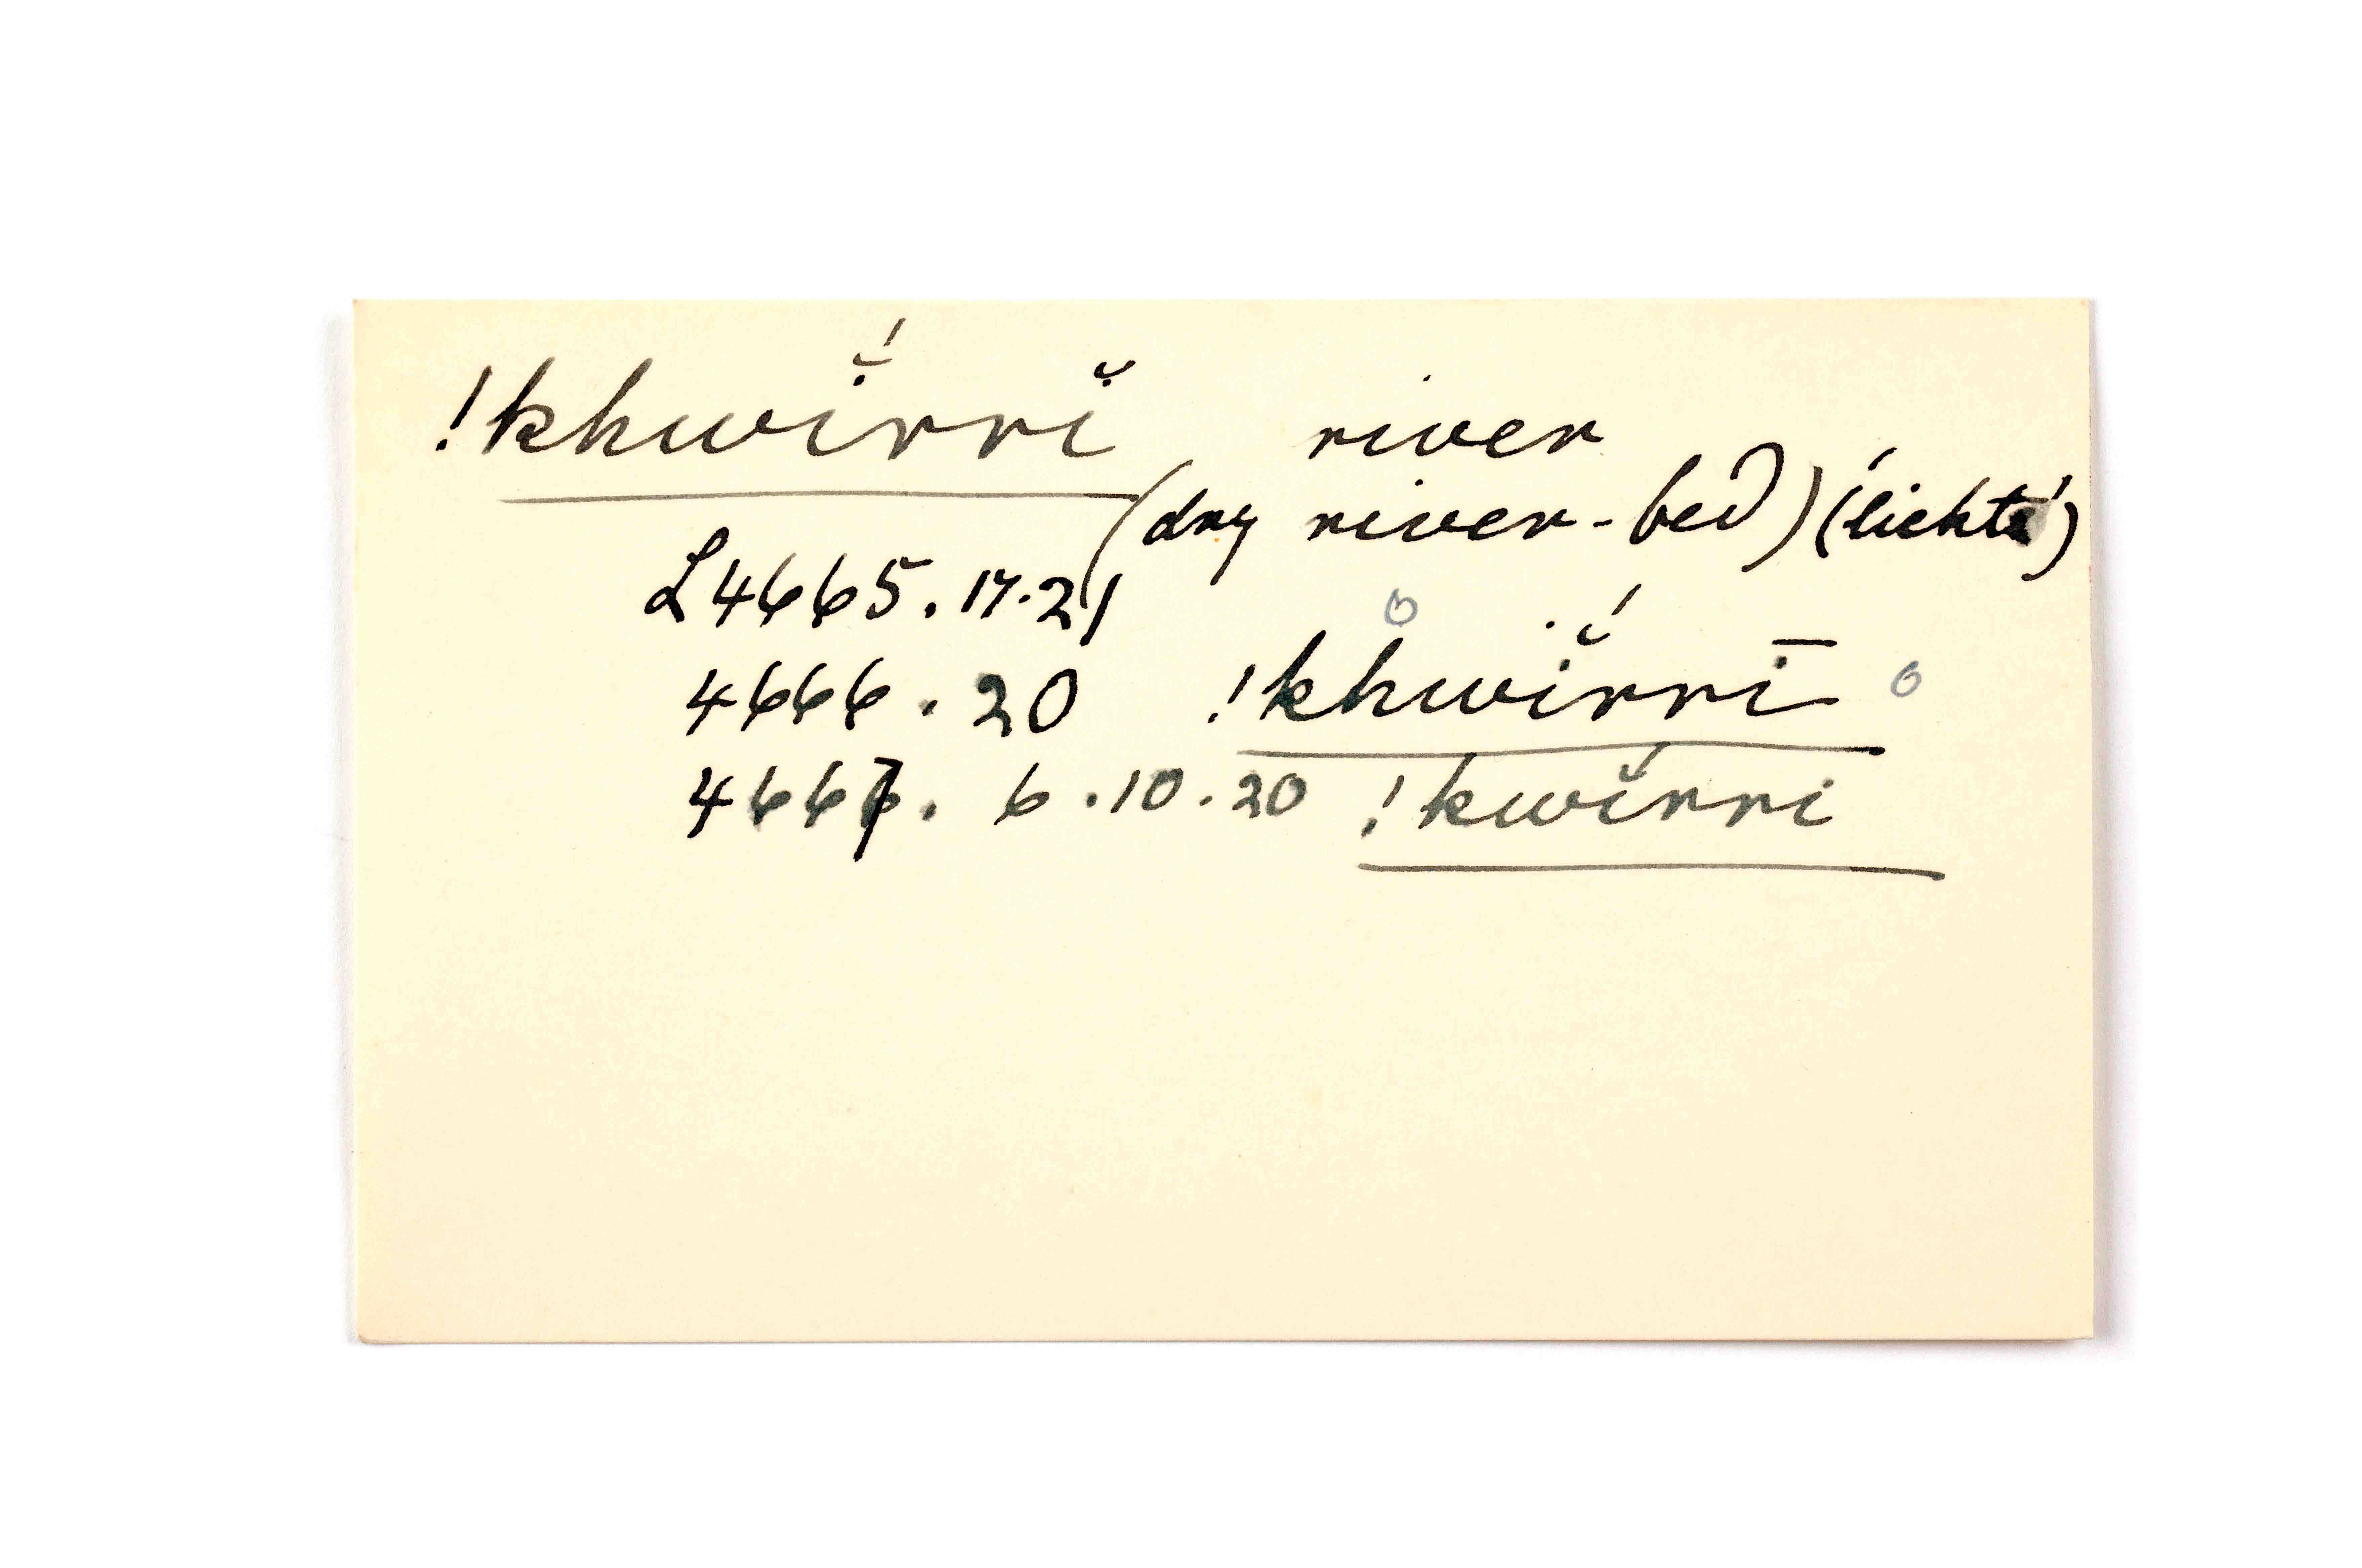 !khwĭ́rrĭ river
(dry river-bed) (lichte)
L 4665. 17. 21
4666. 20 !khwĭ́rrī
4667. 6. 10. 20 !kwĭ́rri